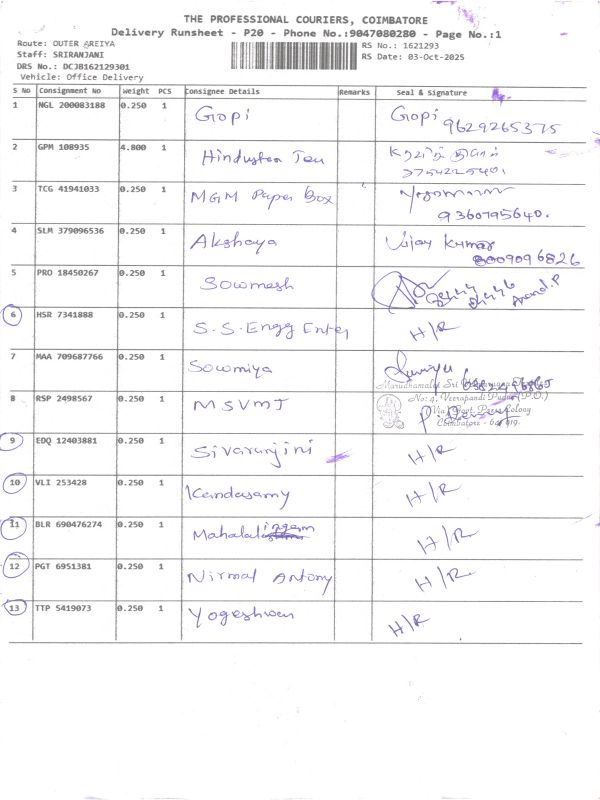 THE PROFESSIONAL COURIERS, COIMBATORE
Delivery Runsheet - P20 - Phone No.:9047080280 - Page No.:1
Route: OUTER AREIYA
RS No.: 1621293
Staff: SRIRANJANI
RS Date: 03-Oct-2025
DRS No.: DCJB162129301
Vehicle: Office Delivery
S No Consignment No Weight PCS Consignee Details Remarks Seal & Signature
1 NGL 200083188 0.250 1 Gopi Gopi
9629265375
2 GPM 108935 4.800 1 Hindustan
3 TCG 41941033 0.250 1 MGM Paper Box
9360795640.
4 SLM 379096536 0.250 1 Akshaya Vijay Kumar
5 PRO 18450267 0.250 1 Sowmesh Anand.P
6 HSR 7341888 0.250 1 S.S. Engg Enter H/R
7 MAA 709687766 0.250 1 Sowmiya
Marudhamalai Sri
8 RSP 2498567 0.250 1 MSVMJ
No: 4, Veerapandi Pudur (P.O.)
Via Govt. Press Colony
Coimbatore - 641 019.
9 EDQ 12403881 0.250 1 Sivaranjini H/R
10 VLI 253428 0.250 1 Kandasamy H/R
11 BLR 690476274 0.250 1 Mahalalingam H/R
12 PGT 6951381 0.250 1 Nirmal Antony H/R
13 TTP 5419073 0.250 1 Yogeshwari H/R